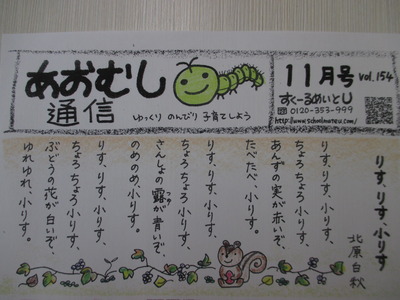 あおむし
通信
ゆっくり のんびり 子育てしよう
11月号 vol.154
すくーるめいとし
0120-353-999
http://www.schoolmate.com/
りす、りす、小りす
北原白秋
りす、りす、小りす、
ちょろちょろ小りす、
あんずの実が赤いぞ、
たべたべ、小りす。
りす、りす、小りす、
ちょろちょろ小りす、
さんしょの露が青いぞ、
つゆ
のめのめ、小りす。
りす、りす、小りす、
ちょろちょろ小りす、
ぶどうの花が白いぞ、
ゆれゆれ、小りす。